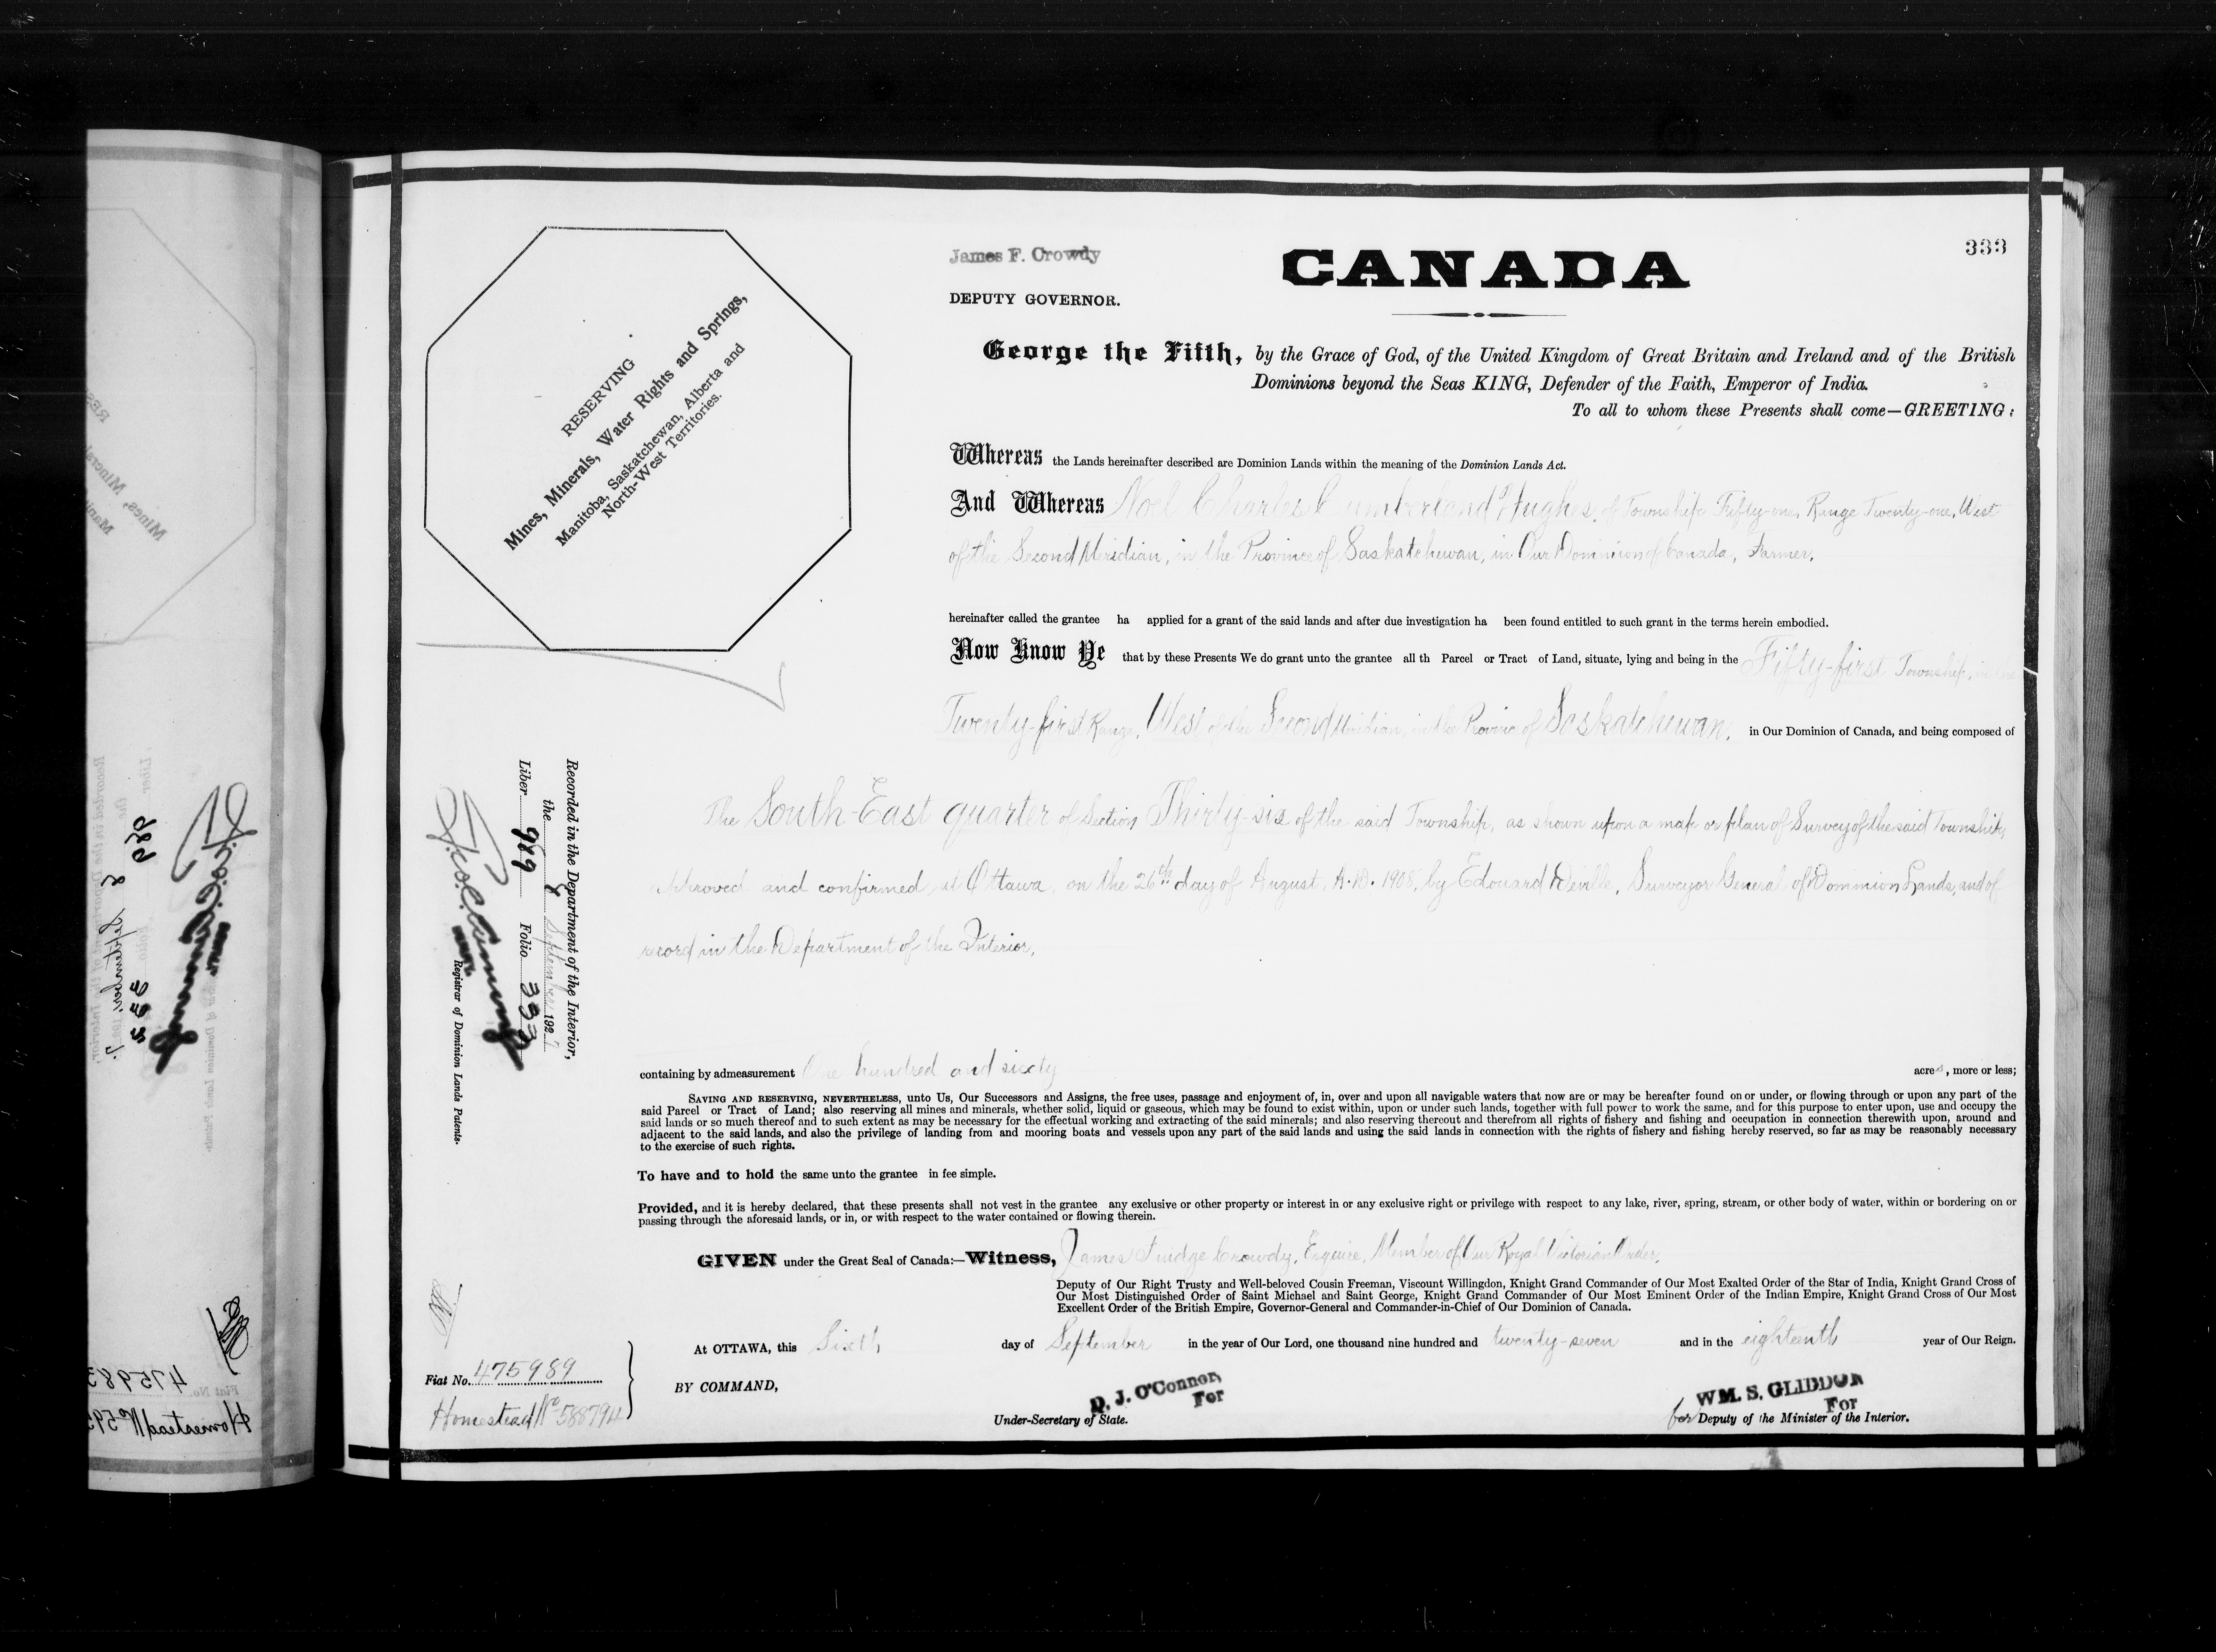 333
James F. Crowdy
CANADA
DEPUTY GOVERNOR.
George the Fifth, by the Grace of God, of the United Kingdom of Great Britain and Ireland and of the British
Dominions beyond the Seas KING, Defender of the Faith, Emperor of India.
To all to whom these Presents shall come—GREETING:
RESERVING
Mines, Minerals, Water Rights and Springs,
Manitoba, Saskatchewan, Alberta and
North-West Territories.
Whereas the Lands hereinafter described are Dominion Lands within the meaning of the Dominion Lands Act.
And Whereas Noel Charles Cumberland Hughes, of Township Fifty-one, Range Twenty-one, West
of the Second Meridian, in the Province of Saskatchewan, in Our Dominion of Canada, Farmer,
hereinafter called the grantee ha applied for a grant of the said lands and after due investigation ha been found entitled to such grant in the terms herein embodied.
Now Know Ye that by these Presents We do grant unto the grantee all th Parcel or Tract of Land, situate, lying and being in the Fifty-first Township, in the
Twenty-first Range, West of the Second Meridian, in the Province of Saskatchewan, in Our Dominion of Canada, and being composed of
The South-East quarter of Section Thirty-six of the said Township, as shown upon a map or plan of Survey of the said Township,
approved and confirmed, at Ottawa, on the 26th day of August, A.D. 1908, by Edouard Deville, Surveyor General of Dominion Lands, and of
record in the Department of the Interior,
Recorded in the Department of the Interior,
the 8 September 1927
Liber 989 Folio 333
Registrar of Dominion Lands Patents.
containing by admeasurement One hundred and sixty acres, more or less;
SAVING AND RESERVING, NEVERTHELESS, unto Us, Our Successors and Assigns, the free uses, passage and enjoyment of, in, over and upon all navigable waters that now are or may be hereafter found on or under, or flowing through or upon any part of the
said Parcel or Tract of Land; also reserving all mines and minerals, whether solid, liquid or gaseous, which may be found to exist within, upon or under such lands, together with full power to work the same, and for this purpose to enter upon, use and occupy the
said lands or so much thereof and to such extent as may be necessary for the effectual working and extracting of the said minerals; and also reserving thereout and therefrom all rights of fishery and fishing and occupation in connection therewith upon, around and
adjacent to the said lands, and also the privilege of landing from and mooring boats and vessels upon any part of the said lands and using the said lands in connection with the rights of fishery and fishing hereby reserved, so far as may be reasonably necessary
to the exercise of such rights.
To have and to hold the same unto the grantee in fee simple.
Provided, and it is hereby declared, that these presents shall not vest in the grantee any exclusive or other property or interest in or any exclusive right or privilege with respect to any lake, river, spring, stream, or other body of water, within or bordering on or
passing through the aforesaid lands, or in, or with respect to the water contained or flowing therein.
GIVEN under the Great Seal of Canada:—Witness, James Fuidge Crowdy, Esquire, Member of Our Royal Victorian Order,
Deputy of Our Right Trusty and Well-beloved Cousin Freeman, Viscount Willingdon, Knight Grand Commander of Our Most Exalted Order of the Star of India, Knight Grand Cross of
Our Most Distinguished Order of Saint Michael and Saint George, Knight Grand Commander of Our Most Eminent Order of the Indian Empire, Knight Grand Cross of Our Most
Excellent Order of the British Empire, Governor-General and Commander-in-Chief of Our Dominion of Canada.
At OTTAWA, this Sixth day of September in the year of Our Lord, one thousand nine hundred and twenty-seven and in the eighteenth year of Our Reign.
Fiat No. 475989
Homestead No 588794
BY COMMAND,
D. J. O'Connor,
For
Under-Secretary of State.
WM. S. GLIDDON
For
for Deputy of the Minister of the Interior.